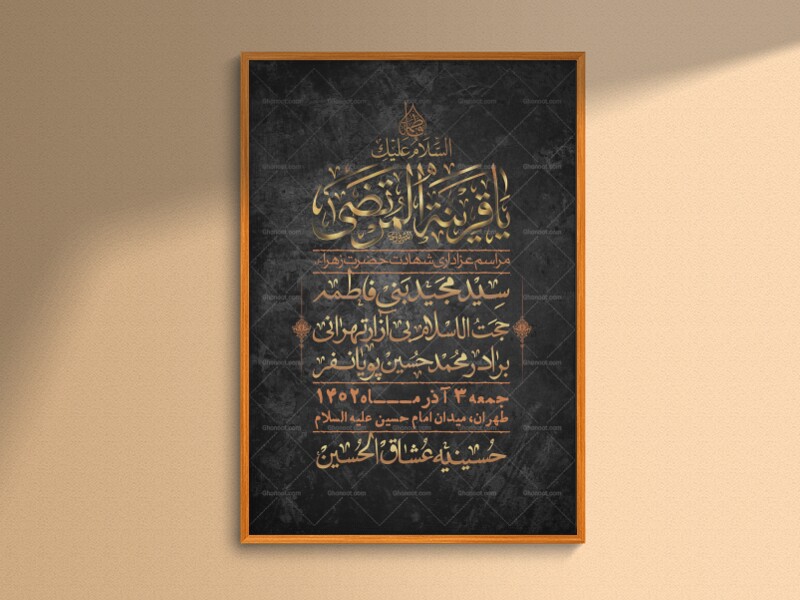 فاطمة
السلام عليك
يا قرينة المرتضى
مراسم عزاداری شهادت حضرت زهراء
سید مجید بنی فاطمه
حجت الاسلام بی آزار تهرانی
برادر محمد حسین پویانفر
جمعه ۳ آذر مــاه ۱۴۰۲
طهران، میدان امام حسین علیه السلام
حسینیه عشاق الحسین
Ghonoot.com